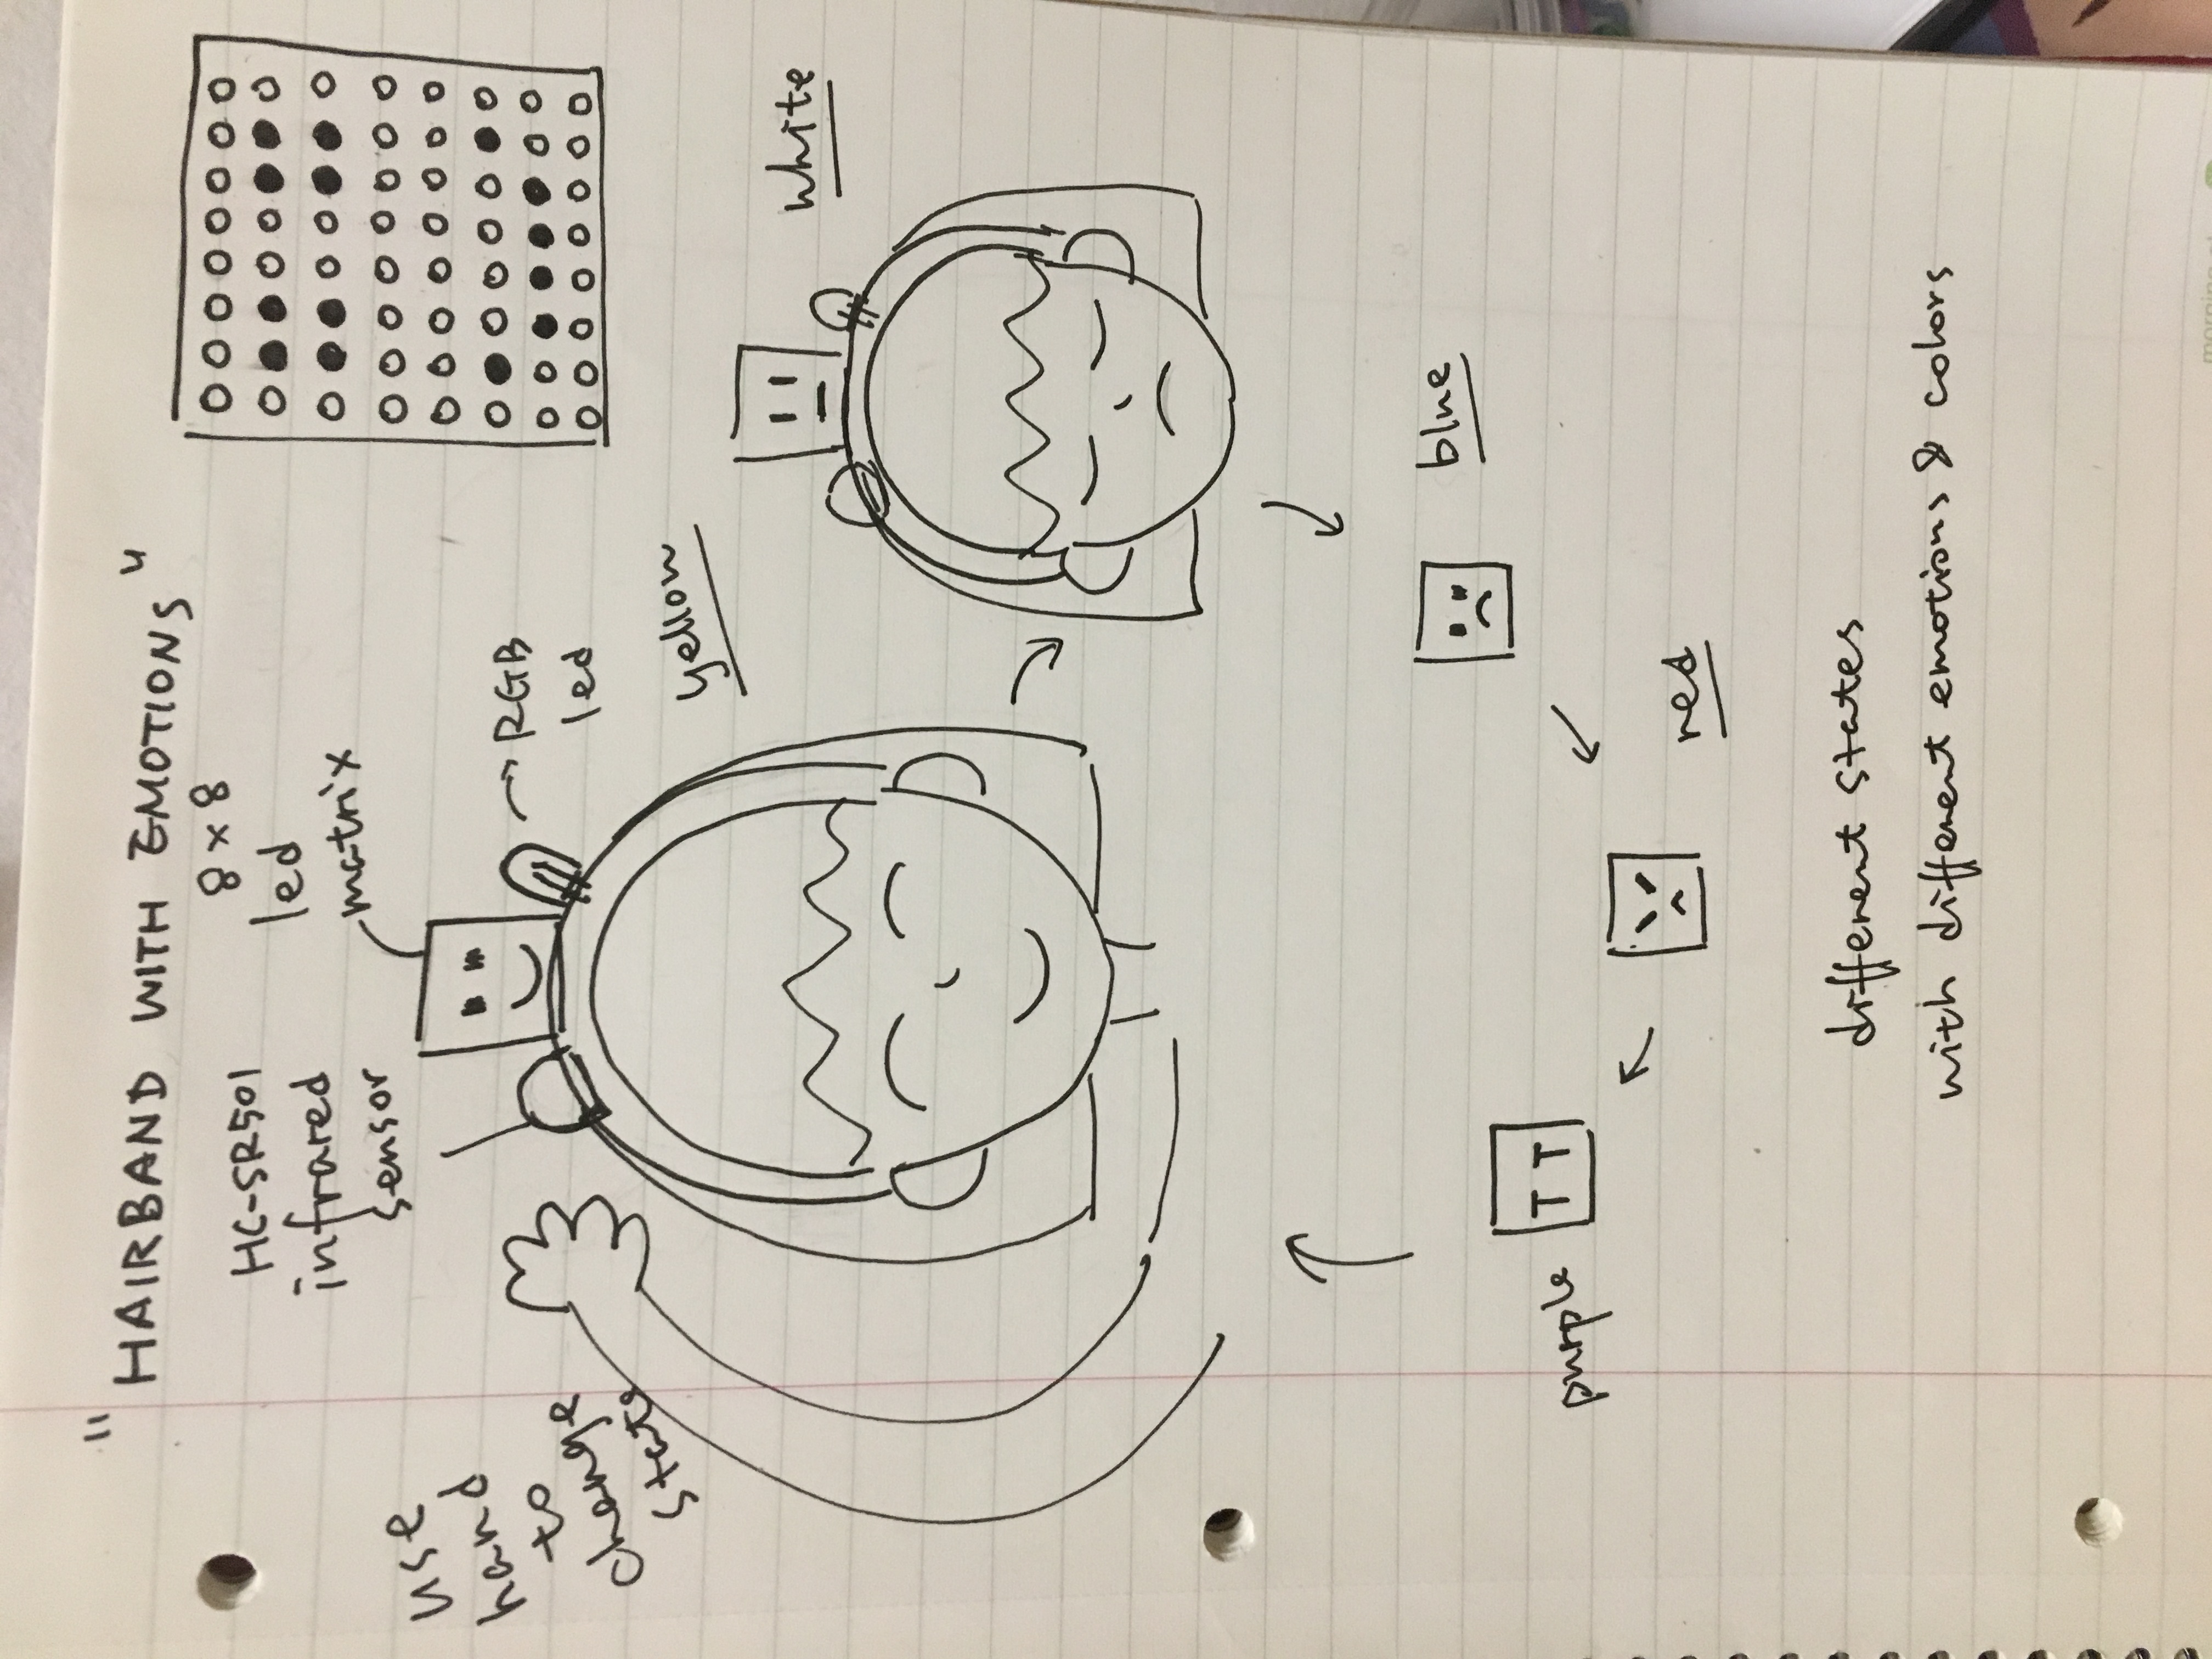 "HAIRBAND WITH EMOTIONS"
HC-SR501
infrared
sensor
8 x 8
led
matrix
use
hand
to
change
state
RGB
led
yellow
white
blue
red
purple
T T
different states
with different emotions & colors